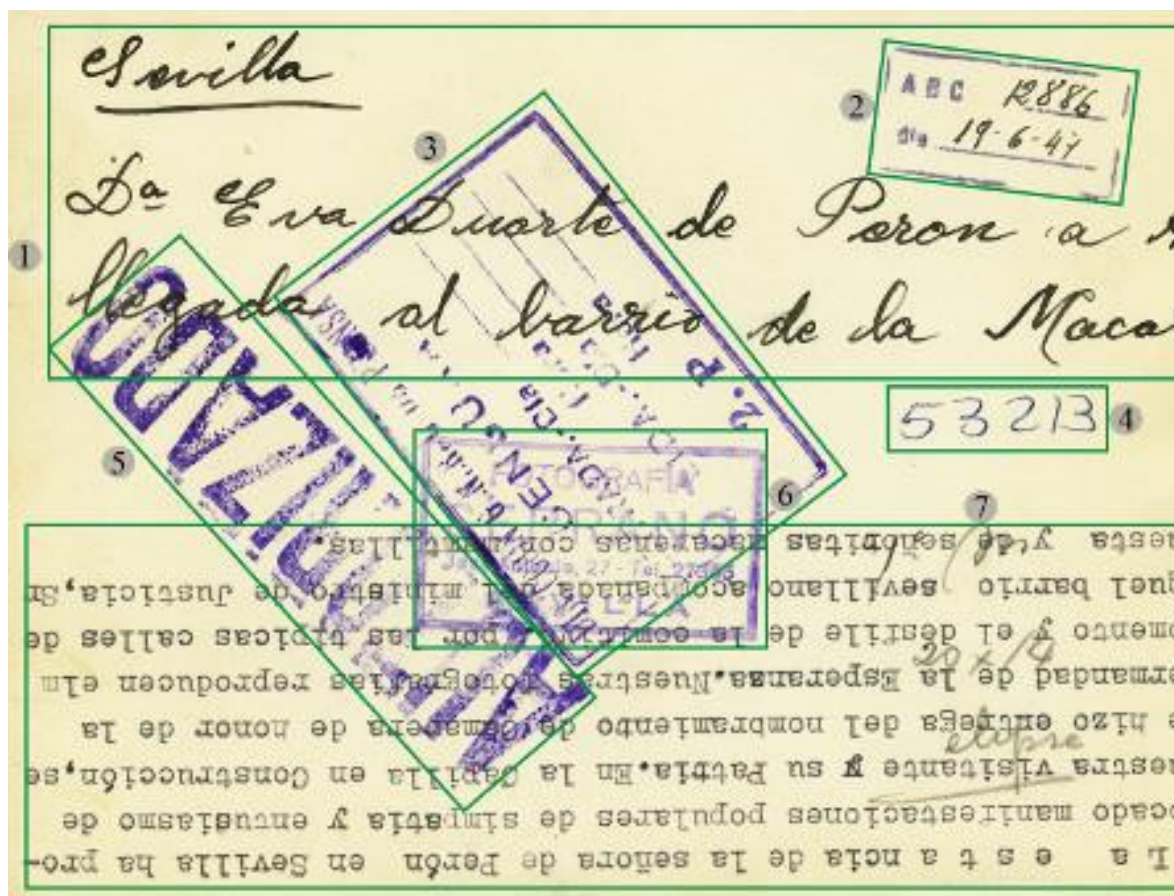 Sevilla
ABC 12886
día 19-6-47
Dª Eva Duarte de Peron a
llegada al barrio de la Maca
1
2
3
4
5
6
7
53213
AUTORIZADO
FOTOGRAFÍA
SERRANO
SEVILLA
20 x 14
La estancia de la señora de Perón en Sevilla ha pro-
ocado manifestaciones populares de simpatia y entusiasmo de
uestra visitante y su Patria.En la Capilla en Construcción,se
e hizo entrega del nombramiento de Camarera de honor de la
ermandad de la Esperanza.Nuestras fotografias reproducen elm
omento y el desfile de la comitiva por las típicas calles de
quel barrio sevillano acompañada del ministro de Justicia,Sr
uesta y de señoritas macarenas con mantillas.